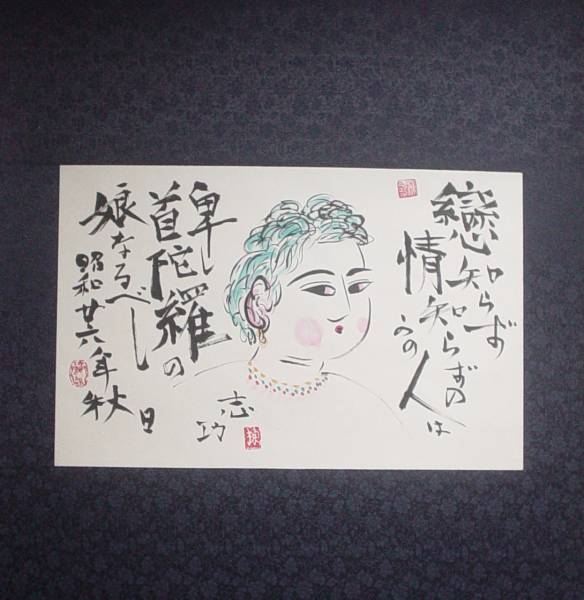 戀知らず
情知らずの
かの人は
卑し
首陀羅の
娘なるべし
昭和廿六年秋日
志功